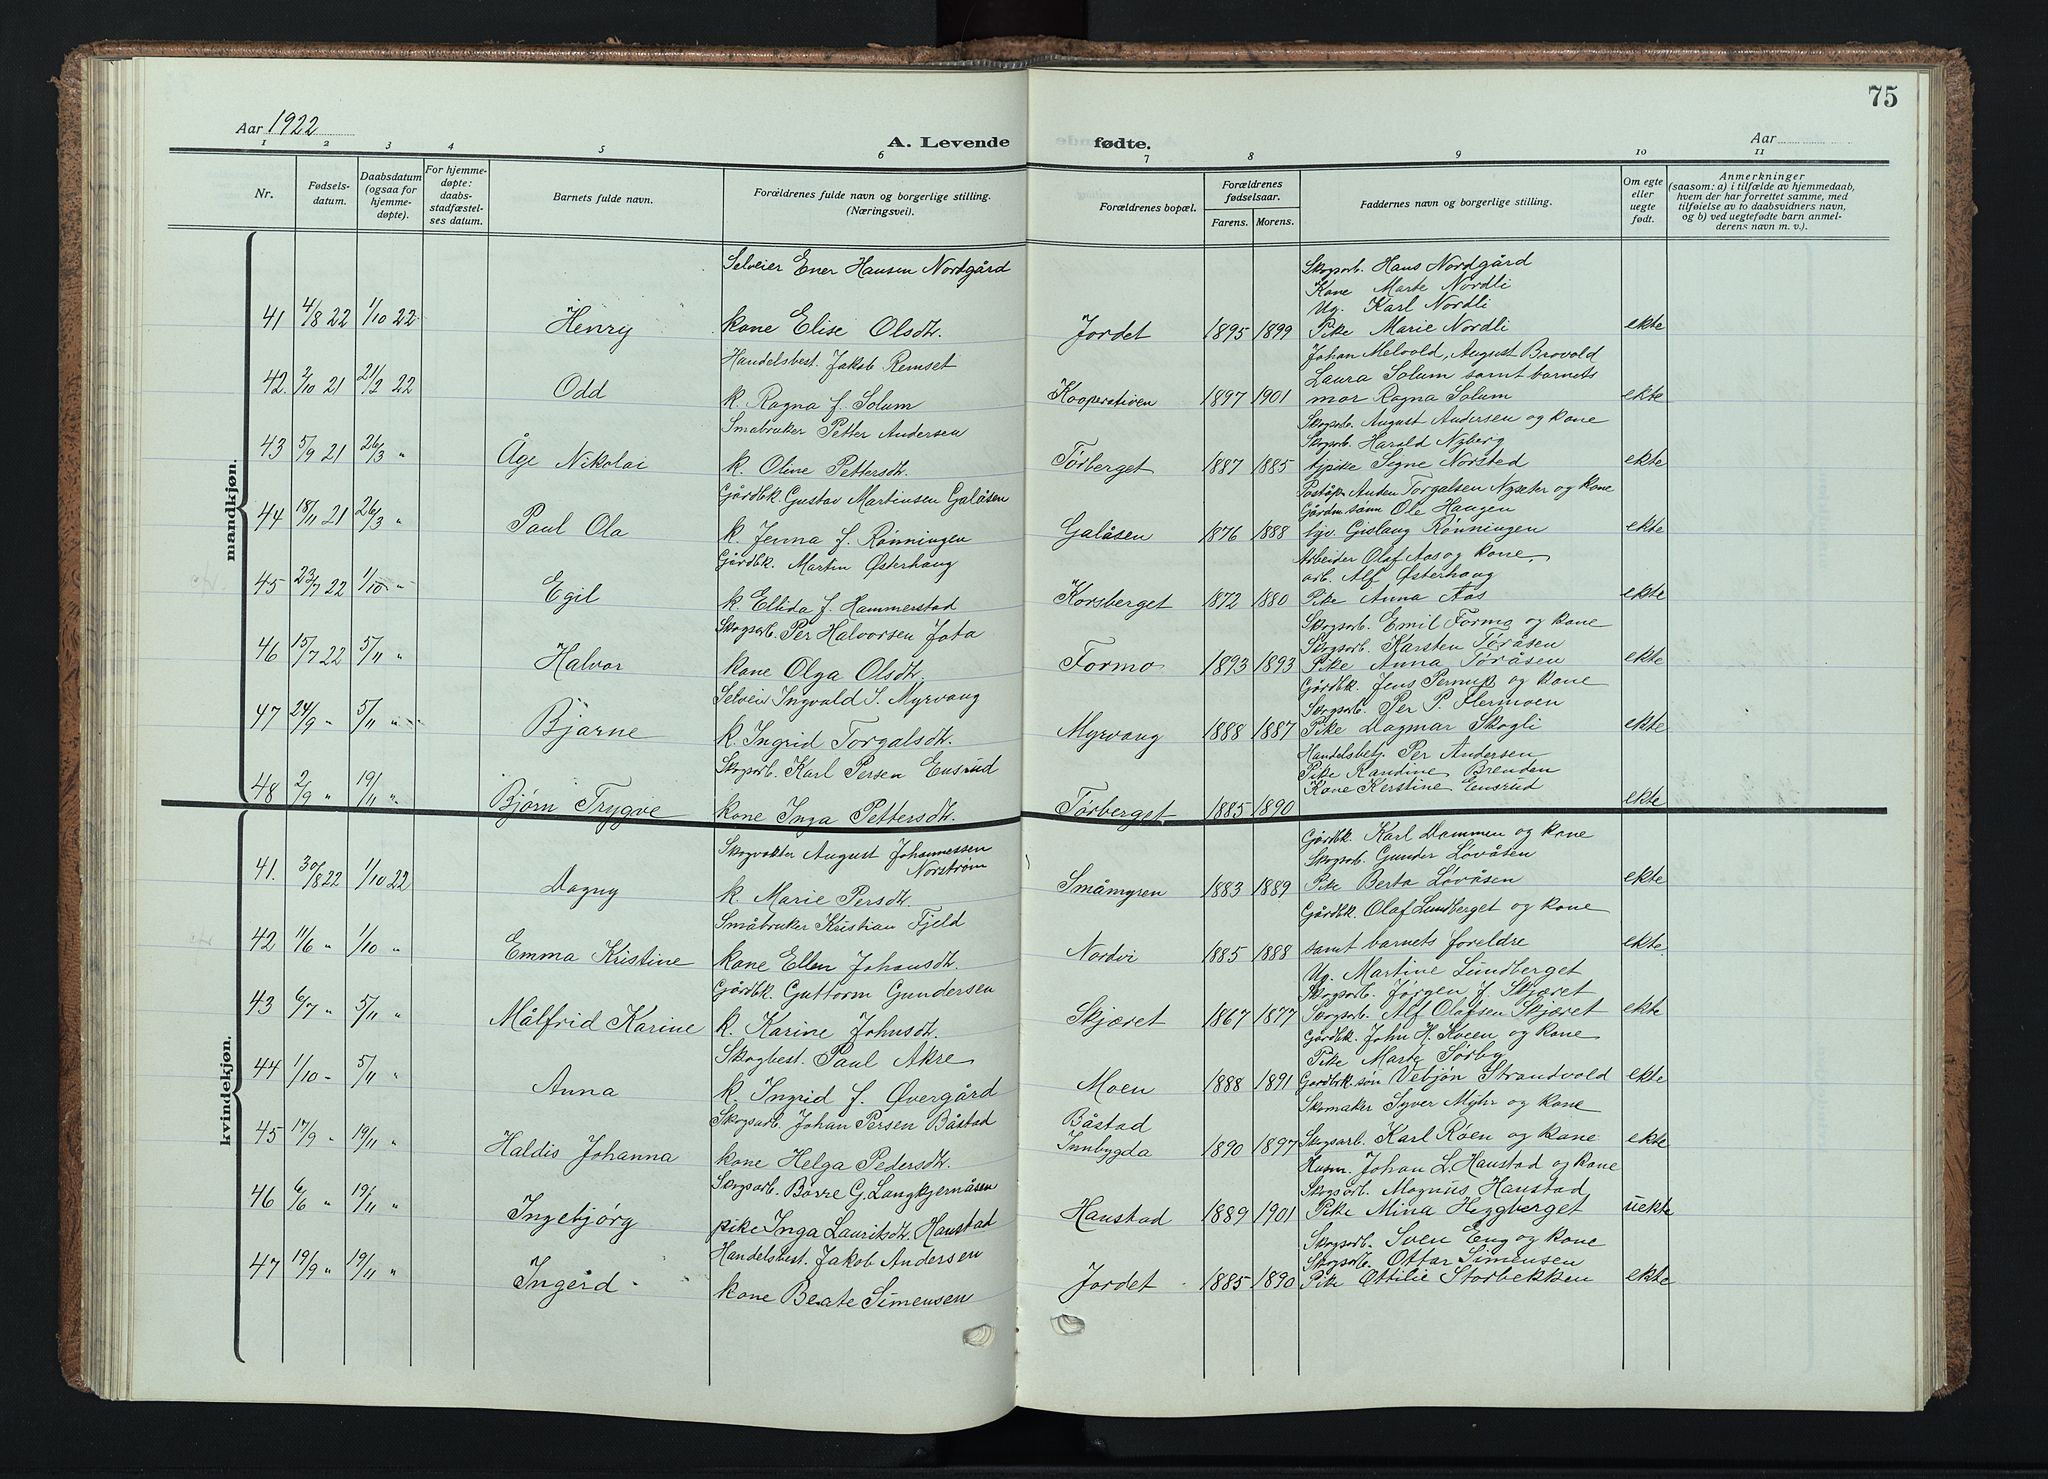 75
Aar 1922
A. Levende fødte.
Aar
1 2 3 4 5 6 7 8 9 10 11
Nr.
Fødsels-
datum.
Daabsdatum
(ogsaa for
hjemme-
døpte).
For hjemme-
døpte:
daabs-
stadfæstel-
ses datum.
Barnets fulde navn.
Forældrenes fulde navn og borgerlige stilling.
(Næringsvei).
Forældrenes bopæl.
Forældrenes
fødselsaar.
Farens. Morens.
Faddernes navn og borgerlige stilling.
Om egte
eller
uegte
født.
Anmerkninger
(saasom: a) i tilfælde av hjemmedaab,
hvem der har forrettet samme, med
tilføielse av to daabsvidners navn,
og b) ved uegtefødte barn anmel-
derens navn m. v.).
mandkjøn.
Selveier Ener Hansen Nordgård
Skogsarb. Hans Nordgård
Kone Marte Nordli
Ug. Karl Nordli
41 4/8 22 1/10 22 Henry kone Elise Olsdtr. Jordet 1895 1899 Pike Marie Nordli ekte
Handelsbest. Jakob Remset
Johan Melvold, August Brovold
Laura Solum samt barnets
42. 2/10 21 21/2 22 Odd k. Ragna f. Solum Kooperativen 1897 1901 mor Ragna Solum ekte
Småbruker Petter Andersen
Skogsarb. August Andersen og kone
Skogsarb. Harald Nyberg
43 5/9 21 26/3 " Åge Nikolai k. Oline Pettersdtr. Tørberget 1887 1885 tjpike Signe Norsted ekte
Gårdbk. Gustav Martinsen Galåsen
Poståp. Anden Torgalsen Nyseter og kone
Gårdm. sønn Ole Haugen
44 18/11 21 26/3 " Paul Ola k. Jenna f. Rønningen Galåsen 1876 1888 Gislaug Rønningen ekte
Gårdbk. Martin Østerhaug
Arbeider Olaf Aas og kone,
arb. Alf Østerhaug
45 23/7 22 1/10 " Egil k. Ellida f. Hammerstad Korsberget 1872 1880 Pike Anna Aas ekte
Skogsarb. Per Halvorsen Jota
Skogsarb. Emil Formo og kone
Skogsarb. Karsten Töråsen
46 15/7 22 5/11 " Halvor kone Olga Olsdtr. Formo 1893 1893 Pike Anna Töråsen ekte
Selveier Ingvald S. Myrvang
Gårdbk. Jens Pernup og kone
Skogsarb. Per P. Flermoen
47 24/9 " 5/11 " Bjarne k. Ingrid Torgalsdtr. Myrvang 1888 1887 Pike Dagmar Skogli ekte
Skogsarb. Karl Persen Ensrud
Handelsbetj. Per Andersen
Pike Randine Brenden
Kone Kerstine Ensrud
48 2/9 " 19/11 " Bjørn Trygve kone Inga Pettersdtr. Tørberget 1885 1890 ekte
kvindekjøn.
Skogvokter August Johannessen
Norstrøm
Gårdbk. Karl Dammen og kone
Skogsarb. Gunder Lövåsen
41. 30/8 22 1/10 22 Dagny k. Marie Persdtr. Småmyren 1883 1889 Pike Berta Lövåsen ekte
Småbruker Kristian Fjeld
Gårdbk. Olaf Lundberget og kone
42 11/6 " 1/10 " Emma Kristine kone Ellen Johansdtr. Nordvi 1885 1888 samt barnets foreldre ekte.
Ug. Martine Lundberget
Gårdbk. Guttorm Gundersen
Skogsarb. Jörgen J. Skjæret
43 6/7 " 5/11 " Målfrid Karine k. Karine Johnsdtr. Skjæret 1867 1877 Skogsarb. Alf Olafsen Skjæret ekte
Skogbest. Paul Akre
Gårdbk. John H. Kveen og kone
Pike Marta Sörby
44 1/10 - 5/11 " Anna k. Ingrid f. Øvergård Moen 1888 1891 Gardbk. søn Vebjön Strandvold ekte
Skogsarb. Johan Persen Båstad
Båstad
Skomaker Syver Myhr og kone
45 17/9 " 19/11 " Haldis Johanna kone Helga Pedersdtr. Innbygda 1890 1897 Skogsarb. Karl Röen og kone ekte
Skogsarb. Börre G. Langkjernåsen
Husm. Johan L. Haustad og kone
Skogsarb. Magnus Haustad
46 6/6 " 19/11 " Ingebjörg pike Inga Lauritsdtr. Haustad Haustad 1889 1901 Pike Mina Heggberget uekte
Handelsbest. Jakob Andersen
Skogsarb. Sven Eng og kone
Skogsarb. Ottar Simensen
47 19/9 " 19/11 " Ingerd kone Beate Simensen Jordet 1885 1890 Pike Ottilie Storbekken ekte